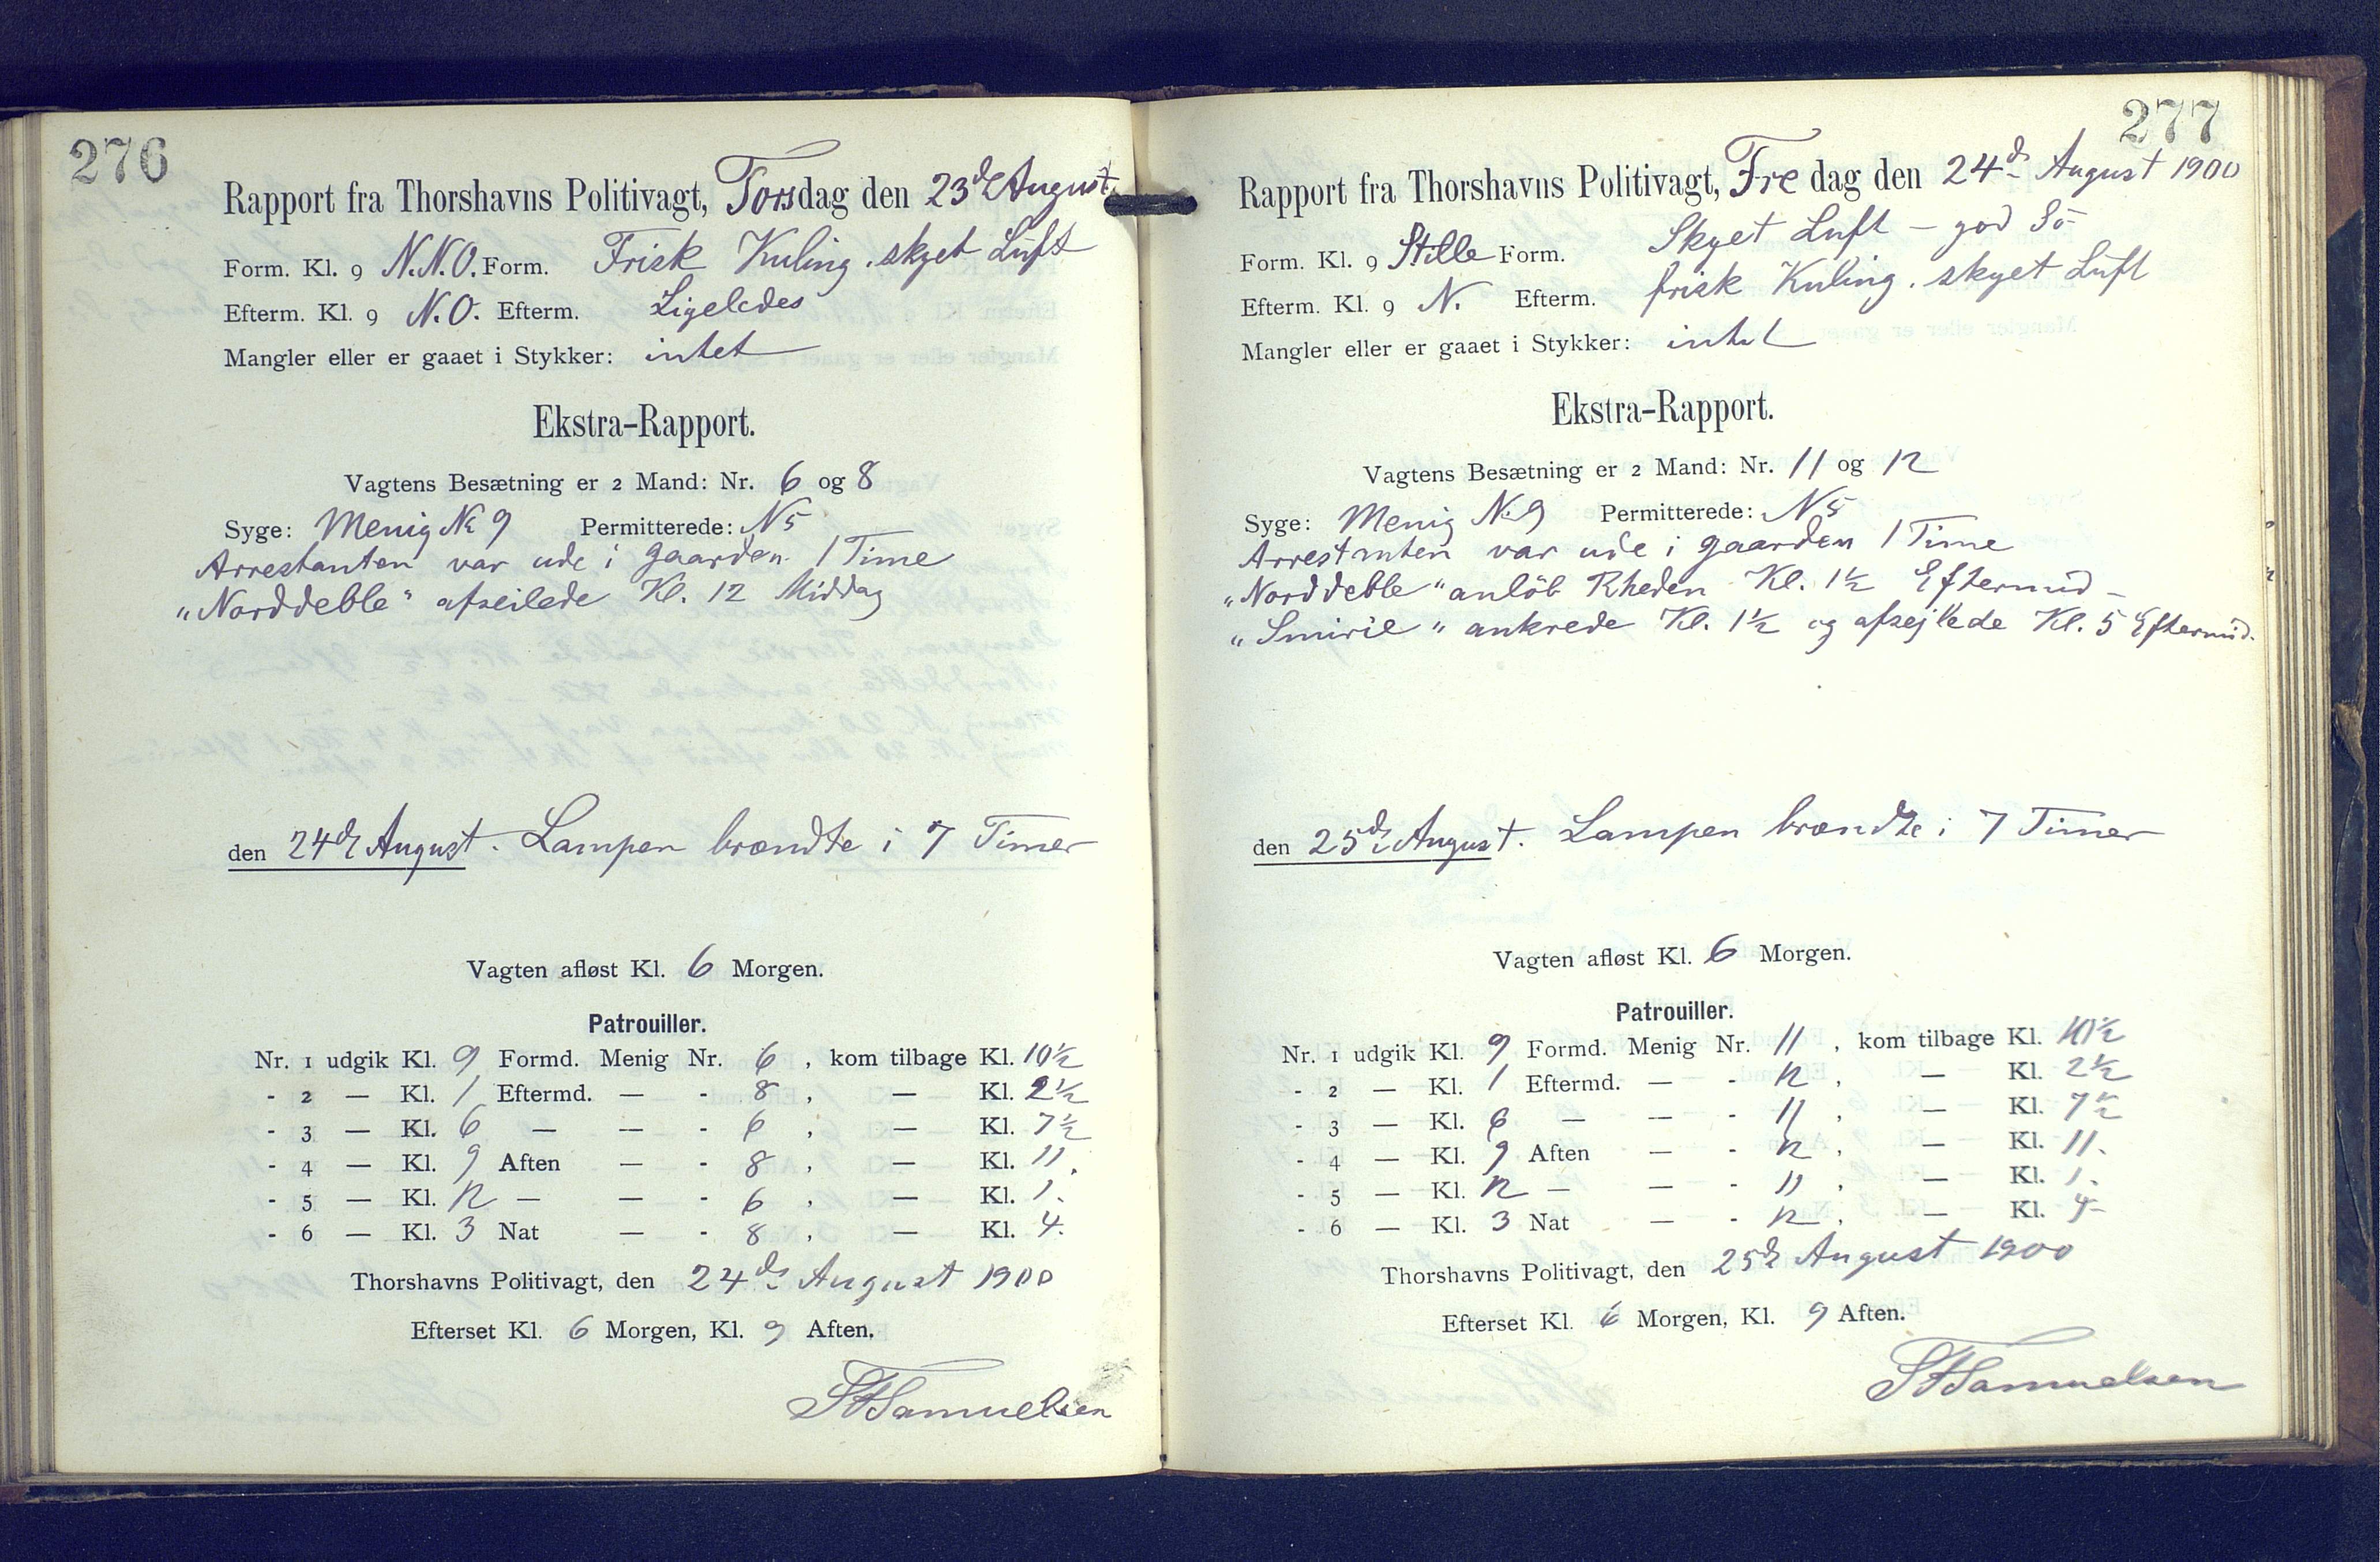 276
Rapport fra Thorshavns Politivagt, Torsdag den 23de August
Form. Kl. 9 N.N.O. Form. Frisk Kuling. skyet Luft
Efterm. Kl. 9 N.O. Efterm. Ligeledes
Mangler eller er gaaet i Stykker: intet
Ekstra-Rapport.
Vagtens Besætning er 2 Mand: Nr. 6 og 8
Syge: Menig No 9 Permitterede: N 5
Arrestanten var ude i Gaarden 1 Time
„Norddeble“ afseilede Kl. 12 Middag
den 24de August. Lampen brændte i 7 Timer
Vagten afløst Kl. 6 Morgen.
Patrouiller.
Nr. 1 udgik Kl. 9 Formd. Menig Nr. 6, kom tilbage Kl. 10½
- 2 — Kl. 1 Eftermd. — - 8, — Kl. 2½
- 3 — Kl. 6 — — - 6, — Kl. 7½
- 4 — Kl. 9 Aften — - 8, — Kl. 11.
- 5 — Kl. 12 — — - 6, — Kl. 1.
- 6 — Kl. 3 Nat — - 8, — Kl. 4.
Thorshavns Politivagt, den 24de August 1900
Efterset Kl. 6 Morgen, Kl. 9 Aften.
Samuelsen
277
Rapport fra Thorshavns Politivagt, Fredag den 24de August 1900
Form. Kl. 9 Stille Form. Skyet Luft – god Sö
Efterm. Kl. 9 N. Efterm. frisk Kuling. skyet Luft
Mangler eller er gaaet i Stykker: intet
Ekstra-Rapport.
Vagtens Besætning er 2 Mand: Nr. 11 og 12
Syge: Menig N. 9 Permitterede: N 5
Arrestanten var ude i Gaarden 1 Time
„Norddeble“ anlöb Rheden Kl. 1½ Eftermid –
„Smirie“ ankrede Kl. 1½ og afsejlede Kl. 5 Eftermid.
den 25de August. Lampen brændte i 7 Timer
Vagten afløst Kl. 6 Morgen.
Patrouiller.
Nr. 1 udgik Kl. 9 Formd. Menig Nr. 11, kom tilbage Kl. 10½
- 2 — Kl. 1 Eftermd. — - 12, — Kl. 2½
- 3 — Kl. 6 — — - 11, — Kl. 7½
- 4 — Kl. 9 Aften — - 12, — Kl. 11.
- 5 — Kl. 12 — — - 11, — Kl. 1.
- 6 — Kl. 3 Nat — - 12, — Kl. 4
Thorshavns Politivagt, den 25de August 1900
Efterset Kl. 6 Morgen, Kl. 9 Aften.
Samuelsen